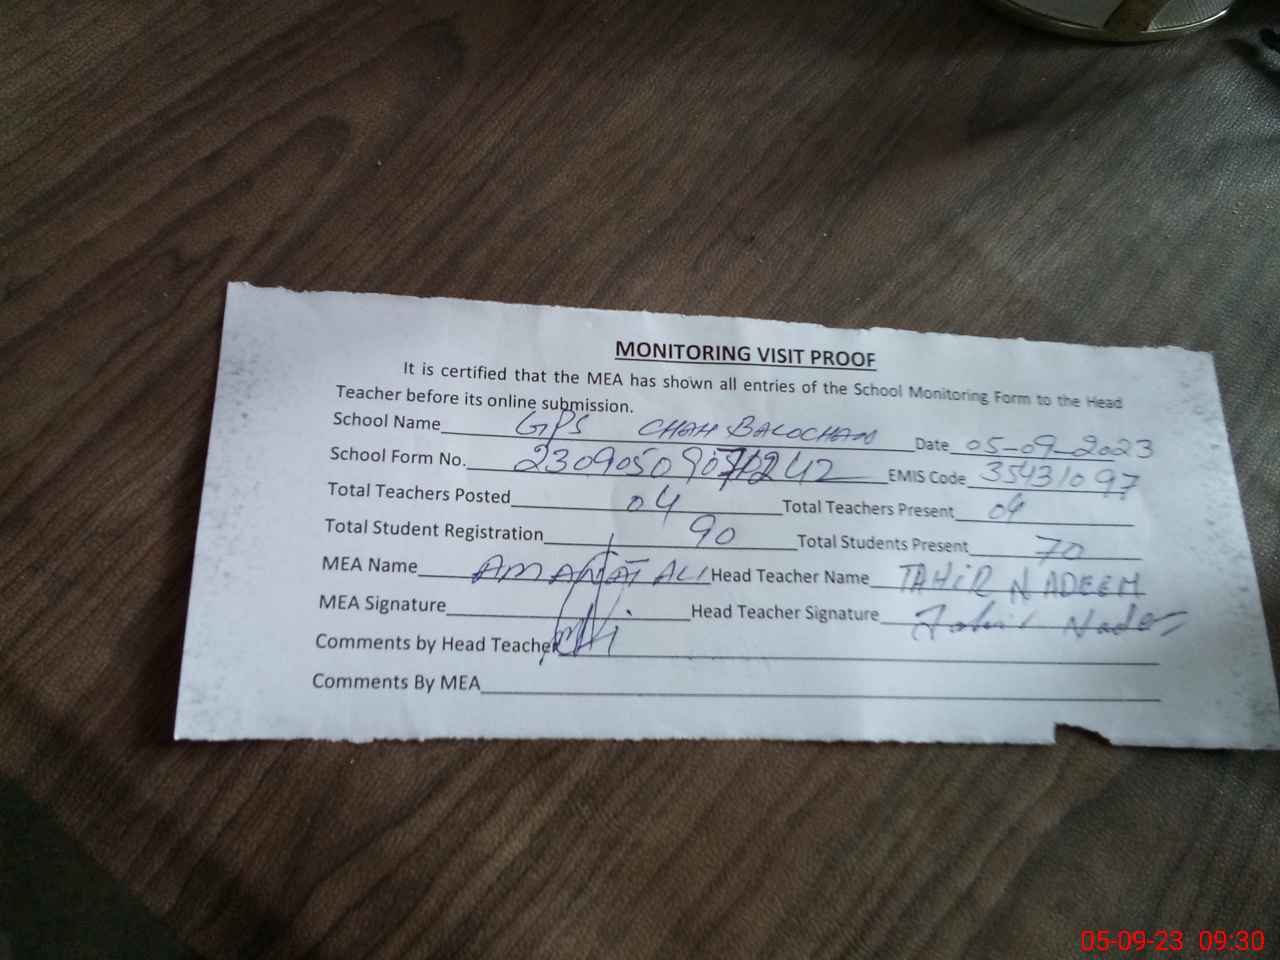 MONITORING VISIT PROOF
It is certified that the MEA has shown all entries of the School Monitoring Form to the Head
Teacher before its online submission.
School Name GPS CHAH BALOCHAN Date 05-09-2023
School Form No. EMIS Code 35431097
Total Teachers Posted 04 Total Teachers Present 04
Total Student Registration 90 Total Students Present 70
MEA Name AMANAT ALI Head Teacher Name TAHIR NADEEM
MEA Signature Head Teacher Signature Tahir Nadeem
Comments by Head Teacher
Comments By MEA
05-09-23 09:30